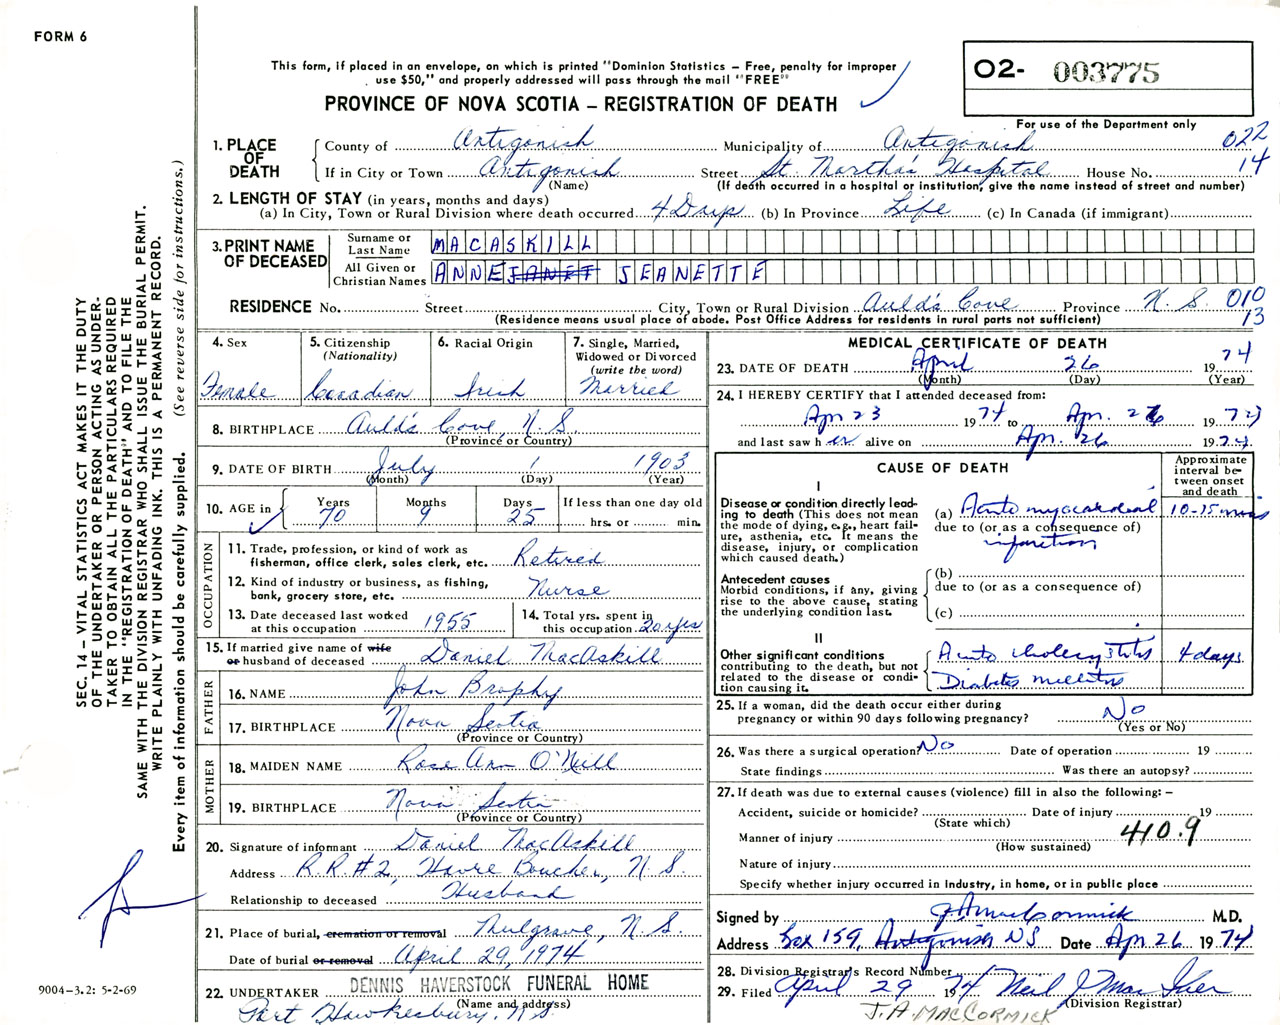 FORM 6
This form, if placed in an envelope, on which is printed "Dominion Statistics – Free, penalty for improper
use $50," and properly addressed will pass through the mail "FREE"
PROVINCE OF NOVA SCOTIA – REGISTRATION OF DEATH
02- 003775
For use of the Department only
022
14
1. PLACE OF DEATH
County of Antigonish Municipality of Antigonish
If in City or Town Antigonish Street St. Martha's Hospital House No.
(Name) (If death occurred in a hospital or institution, give the name instead of street and number)
2. LENGTH OF STAY (in years, months and days)
(a) In City, Town or Rural Division where death occurred 4 Days (b) In Province Life (c) In Canada (if immigrant)
3. PRINT NAME OF DECEASED
Surname or Last Name MACASKILL
All Given or Christian Names ANNE JANET JEANETTE
RESIDENCE No. Street City, Town or Rural Division Auld's Cove Province N.S. 010
13
(Residence means usual place of abode. Post Office Address for residents in rural parts not sufficient)
4. Sex Female
5. Citizenship (Nationality) Canadian
6. Racial Origin Irish
7. Single, Married, Widowed or Divorced (write the word) Married
8. BIRTHPLACE Auld's Cove, N.S.
(Province or Country)
9. DATE OF BIRTH July 1 1903
(Month) (Day) (Year)
10. AGE in Years 70 Months 9 Days 25 If less than one day old hrs. or min.
OCCUPATION
11. Trade, profession, or kind of work as fisherman, office clerk, sales clerk, etc. Retired
12. Kind of industry or business, as fishing, bank, grocery store, etc. Nurse
13. Date deceased last worked at this occupation 1955
14. Total yrs. spent in this occupation 20 yrs
15. If married give name of wife or husband of deceased Daniel MacAskill
FATHER
16. NAME John Brophy
17. BIRTHPLACE Nova Scotia
(Province or Country)
MOTHER
18. MAIDEN NAME Rose Ann O'Neill
19. BIRTHPLACE Nova Scotia
(Province or Country)
20. Signature of informant Daniel MacAskill
Address R.R.#2, Havre Boucher, N.S.
Relationship to deceased Husband
21. Place of burial, cremation or removal Mulgrave, N.S.
Date of burial or removal April 29, 1974
22. UNDERTAKER DENNIS HAVERSTOCK FUNERAL HOME
(Name and address)
Port Hawkesbury, N.S.
MEDICAL CERTIFICATE OF DEATH
23. DATE OF DEATH April 26 1974
(Month) (Day) (Year)
24. I HEREBY CERTIFY that I attended deceased from:
Apr 23 1974 to Apr. 26 1974
and last saw her alive on Apr. 26 1974
CAUSE OF DEATH
Approximate interval between onset and death
I
Disease or condition directly leading to death (This does not mean the mode of dying, e.g., heart failure, asthenia, etc. It means the disease, injury, or complication which caused death.)
(a) Acute myocardial 10-15 mins
due to (or as a consequence of)
infarction
Antecedent causes
Morbid conditions, if any, giving rise to the above cause, stating the underlying condition last.
(b)
due to (or as a consequence of)
(c)
II
Other significant conditions contributing to the death, but not related to the disease or condition causing it.
Acute cholecystitis 4 days
Diabetes mellitus
25. If a woman, did the death occur either during pregnancy or within 90 days following pregnancy? No
(Yes or No)
26. Was there a surgical operation? No Date of operation 19
State findings Was there an autopsy?
27. If death was due to external causes (violence) fill in also the following: –
Accident, suicide or homicide? Date of injury 19
(State which)
Manner of injury 410.9
(How sustained)
Nature of injury
Specify whether injury occurred in industry, in home, or in public place
Signed by J.A. MacCormick M.D.
Address Box 159, Antigonish NS Date Apr 26 1974
28. Division Registrar's Record Number
29. Filed April 29 1974 Neil J. Mac
(Division Registrar)
J.A. MACCORMICK
SEC. 14 – VITAL STATISTICS ACT MAKES IT THE DUTY
OF THE UNDERTAKER OR PERSON ACTING AS UNDER-
TAKER TO OBTAIN ALL THE PARTICULARS REQUIRED
IN THE "REGISTRATION OF DEATH" AND TO FILE THE
SAME WITH THE DIVISION REGISTRAR WHO SHALL ISSUE THE BURIAL PERMIT.
WRITE PLAINLY WITH UNFADING INK. THIS IS A PERMANENT RECORD.
Every item of information should be carefully supplied. (See reverse side for instructions.)
9004–3.2: 5-2-69